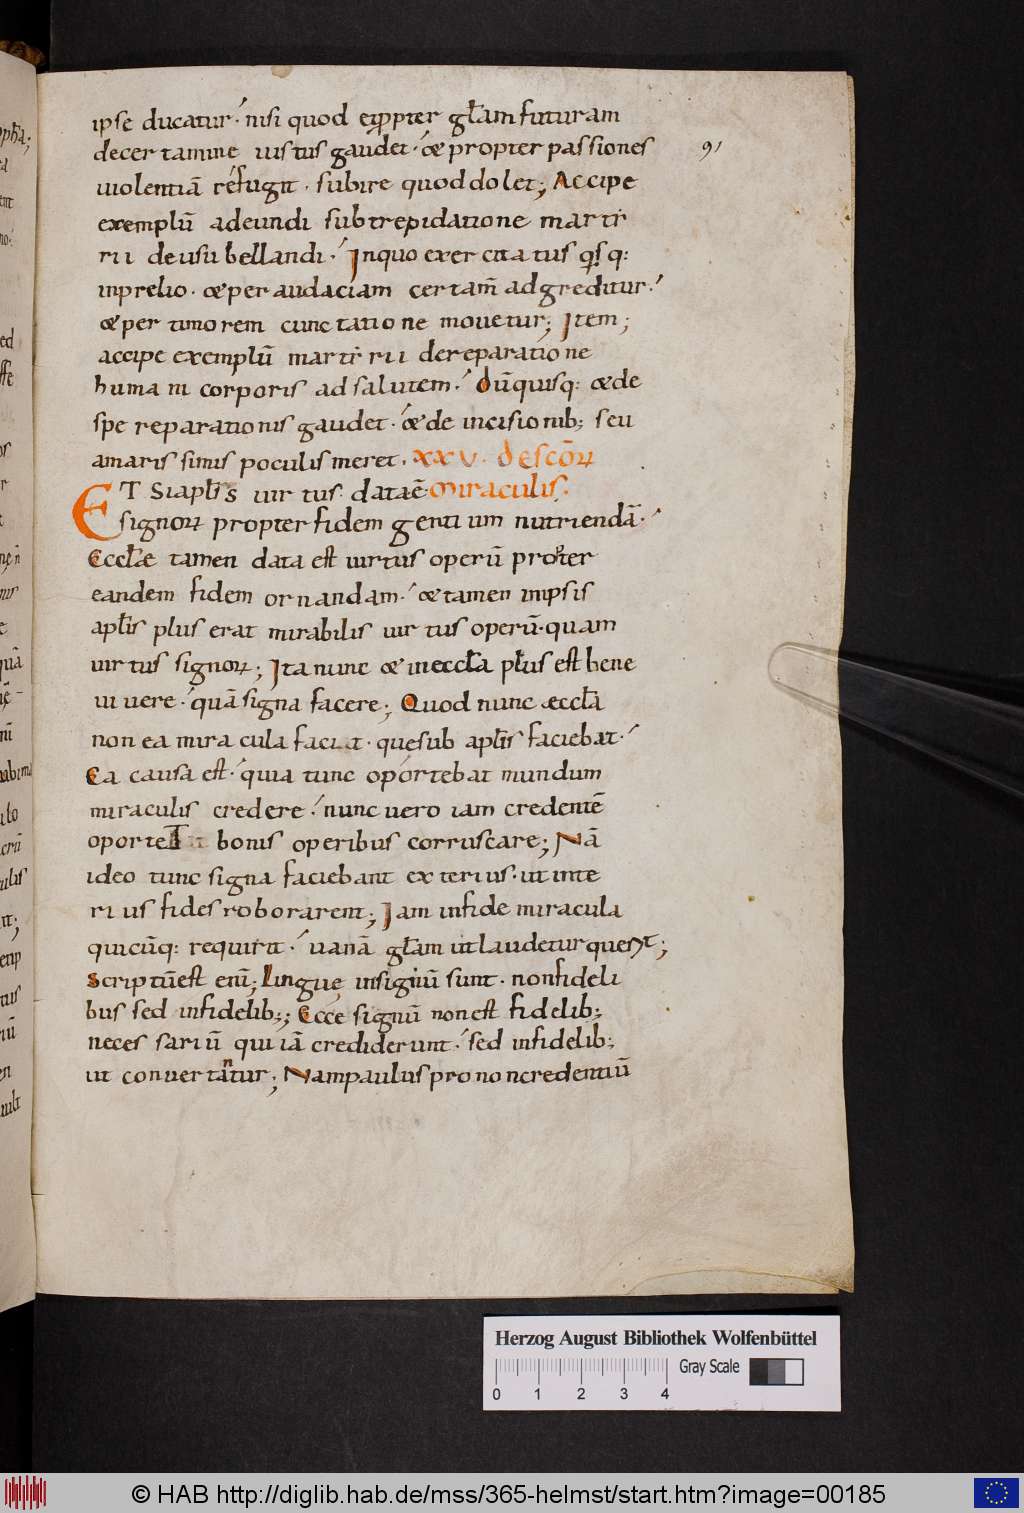 ipse ducatur. nisi quod et ꝓpter gl̄am futuram
decertamine iustus gaudet. & propter passiones
uiolentiā refugit. subire quod dolet; Accipe
exemplū adeundi subtrepidatione martī
rii deusu bellandi. Inquo exercitatus qꝭsq:
inprelio. & per audaciam certam̄ adgreditur.
& per timorem cunctatione mouetur; Item;
accipe exemplū martirii dereparatione
humani corporis ad salutem. Dūquisq: & de
spe reparationis gaudet. & de incisionib; seu
amaris simis poculis meret. XXV. de scōꝝ
ET Si apl̄is uirtus data ē miraculis.
signoꝝ propter fidem gentium nutriendā.
Eccl̄ae tamen data est uirtus operū propter
eandem fidem ornandam. & tamen inipsis
apl̄is plus erat mirabilis uirtus operū. quam
uirtus signoꝝ; Ita nunc & ineccl̄a pl̄us est bene
uiuere. quā signa facere; Quod nunc aeccl̄a
non ea miracula faciat. quesub apl̄is faciebat.
Ea causa est. quia tunc oportebat mundum
miraculis credere. nunc uero iam credentē
oportet bonis operibus corruscare; Nā
ideo tunc signa faciebant exterius. ut inte
rius fides roborarent; Iam infide miracula
quicūq: requirit. uanā gl̄am ut laudetur querit;
Scriptūest enī; Linguę insignū sunt. nonfideli
bus sed infidelib;; Ecce signū nonest fidelib;
necessariū qui iā crediderunt. sed infidelib;
ut conuertantur; Nampaulus pro noncredentiū
91
Herzog August Bibliothek Wolfenbüttel
Gray Scale
0 1 2 3 4
© HAB http://diglib.hab.de/mss/365-helmst/start.htm?image=00185